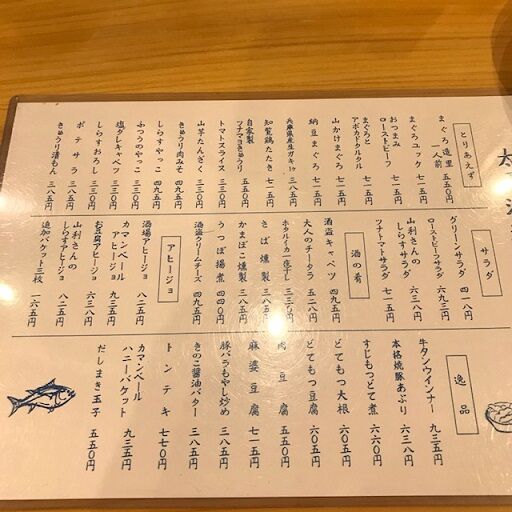 とりあえず
まぐろ造里 一人前 五五〇円
まぐろユッケ 七一五円
おつまみローストビーフ 七一五円
まぐろとアボカドタルタル 七一五円
納豆まぐろ 七一五円
山かけまぐろ 七一五円
兵庫県産生ガキ1ケ 三八五円
知覧鶏たたき 七一五円
自家製ツナマヨきゅうり 五五〇円
トマトスライス 三三〇円
山芋たんざく 三三〇円
きゅうり肉みそ 四九五円
しらすやっこ 四九五円
ふつうのやっこ 三三〇円
塩ダレキャベツ 三三〇円
しらすおろし 三三〇円
ポテサラ 三八五円
きゅうり漬もん 三八五円
サラダ
グリーンサラダ 四一八円
ローストビーフサラダ 九三五円
山利さんのしらすサラダ 六三八円
ツナトマトサラダ 七一五円
酒の肴
酒盗キャベツ 四九五円
大人のチータラ 五二八円
ホタルイカ一夜干し 三三〇円
さば燻製 三八五円
かまぼこ燻製 三三〇円
うつぼ揚煮 四四〇円
酒盗クリームチーズ 四九五円
アヒージョ
酒場アヒージョ 八二五円
カマンベールアヒージョ 九三五円
お豆腐アヒージョ 六三八円
山利さんのしらすアヒージョ 八二五円
追加バケット三枚 一六五円
逸品
牛タンウインナー 九三五円
本格焼豚あぶり 六三八円
すじもつとて煮 六六〇円
どてもつ大根 六〇五円
どてもつ豆腐 六〇五円
肉豆腐 五五〇円
麻婆豆腐 七一五円
豚バラもやし炒め 六三八円
きのこ醤油バター 三八五円
トンテキ 七七〇円
カマンベールハニーバケット 九三五円
だしまき玉子 五五〇円